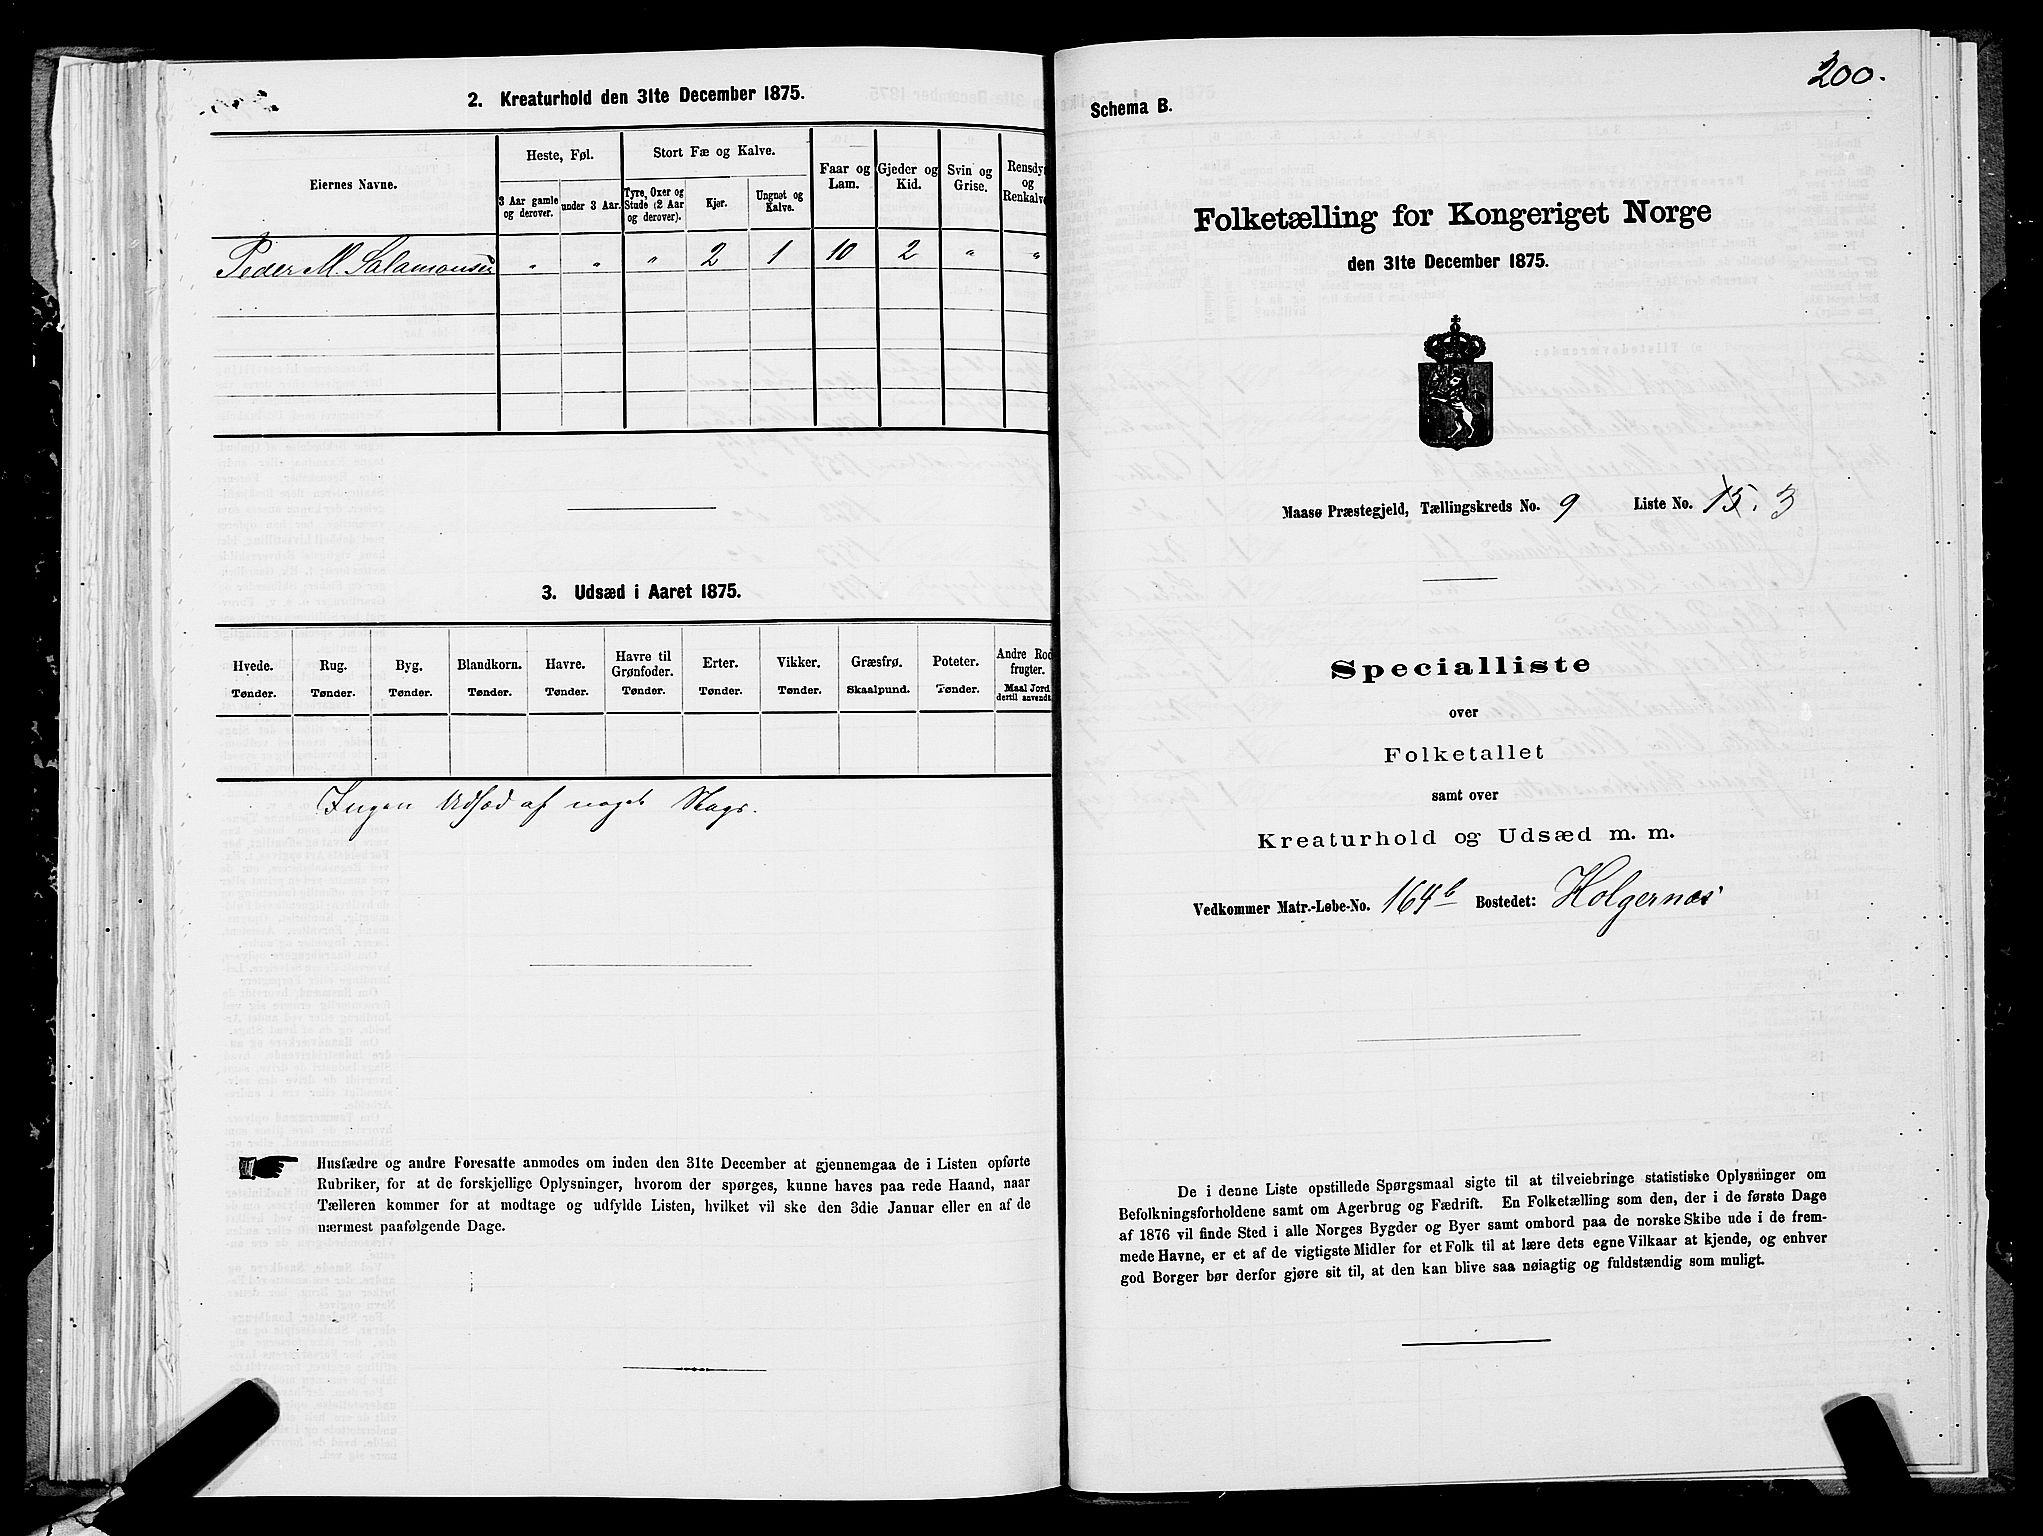 2. Kreaturhold den 31te December 1875.
Eiernes Navne.
Heste, Føl.
Stort Fæ og Kalve.
Faar og Lam.
Gjeder og Kid.
Svin og Grise.
Rensdyr og Renkalve
3 Aar gamle og derover.
under 3 Aar.
Tyre, Oxer og Stude (2 Aar og derover).
Kjør.
Ungnøt og Kalve.
Peder M. Salamonsen " " " 2 1 10 2 " "
3. Udsæd i Aaret 1875.
Hvede. Rug. Byg. Blandkorn. Havre. Havre til Grønfoder. Erter. Vikker. Græsfrø. Poteter. Andre Rod frugter.
Tønder. Tønder. Tønder. Tønder. Tønder. Tønder. Tønder. Tønder. Skaalpund. Tønder. Maal Jord dertil anvendt.
Ingen Udsæd af noget Slags.
Husfædre og andre Foresatte anmodes om inden den 31te December at gjennemgaa de i Listen opførte
Rubriker, for at de forskjellige Oplysninger, hvorom der spørges, kunne haves paa rede Haand, naar
Tælleren kommer for at modtage og udfylde Listen, hvilket vil ske den 3die Januar eller en af de
nærmest paafølgende Dage.
200.
Schema B.
Folketælling for Kongeriget Norge
den 31te December 1875.
Maasø Præstegjeld, Tællingskreds No. 9 Liste No. 15. 3
Specialliste
over
Folketallet
samt over
Kreaturhold og Udsæd m. m.
Vedkommer Matr.-Løbe-No. 164b Bostedet: Holgernæs
De i denne Liste opstillede Spørgsmaal sigte til at tilveiebringe statistiske Oplysninger om
Befolkningsforholdene samt om Agerbrug og Fædrift. En Folketælling som den, der i de første Dage
af 1876 vil finde Sted i alle Norges Bygder og Byer samt ombord paa de norske Skibe ude i de frem-
mede Havne, er et af de vigtigste Midler for et Folk til at lære dets egne Vilkaar at kjende, og enhver
god Borger bør derfor gjøre sit til, at den kan blive saa nøiagtig og fuldstændig som muligt.